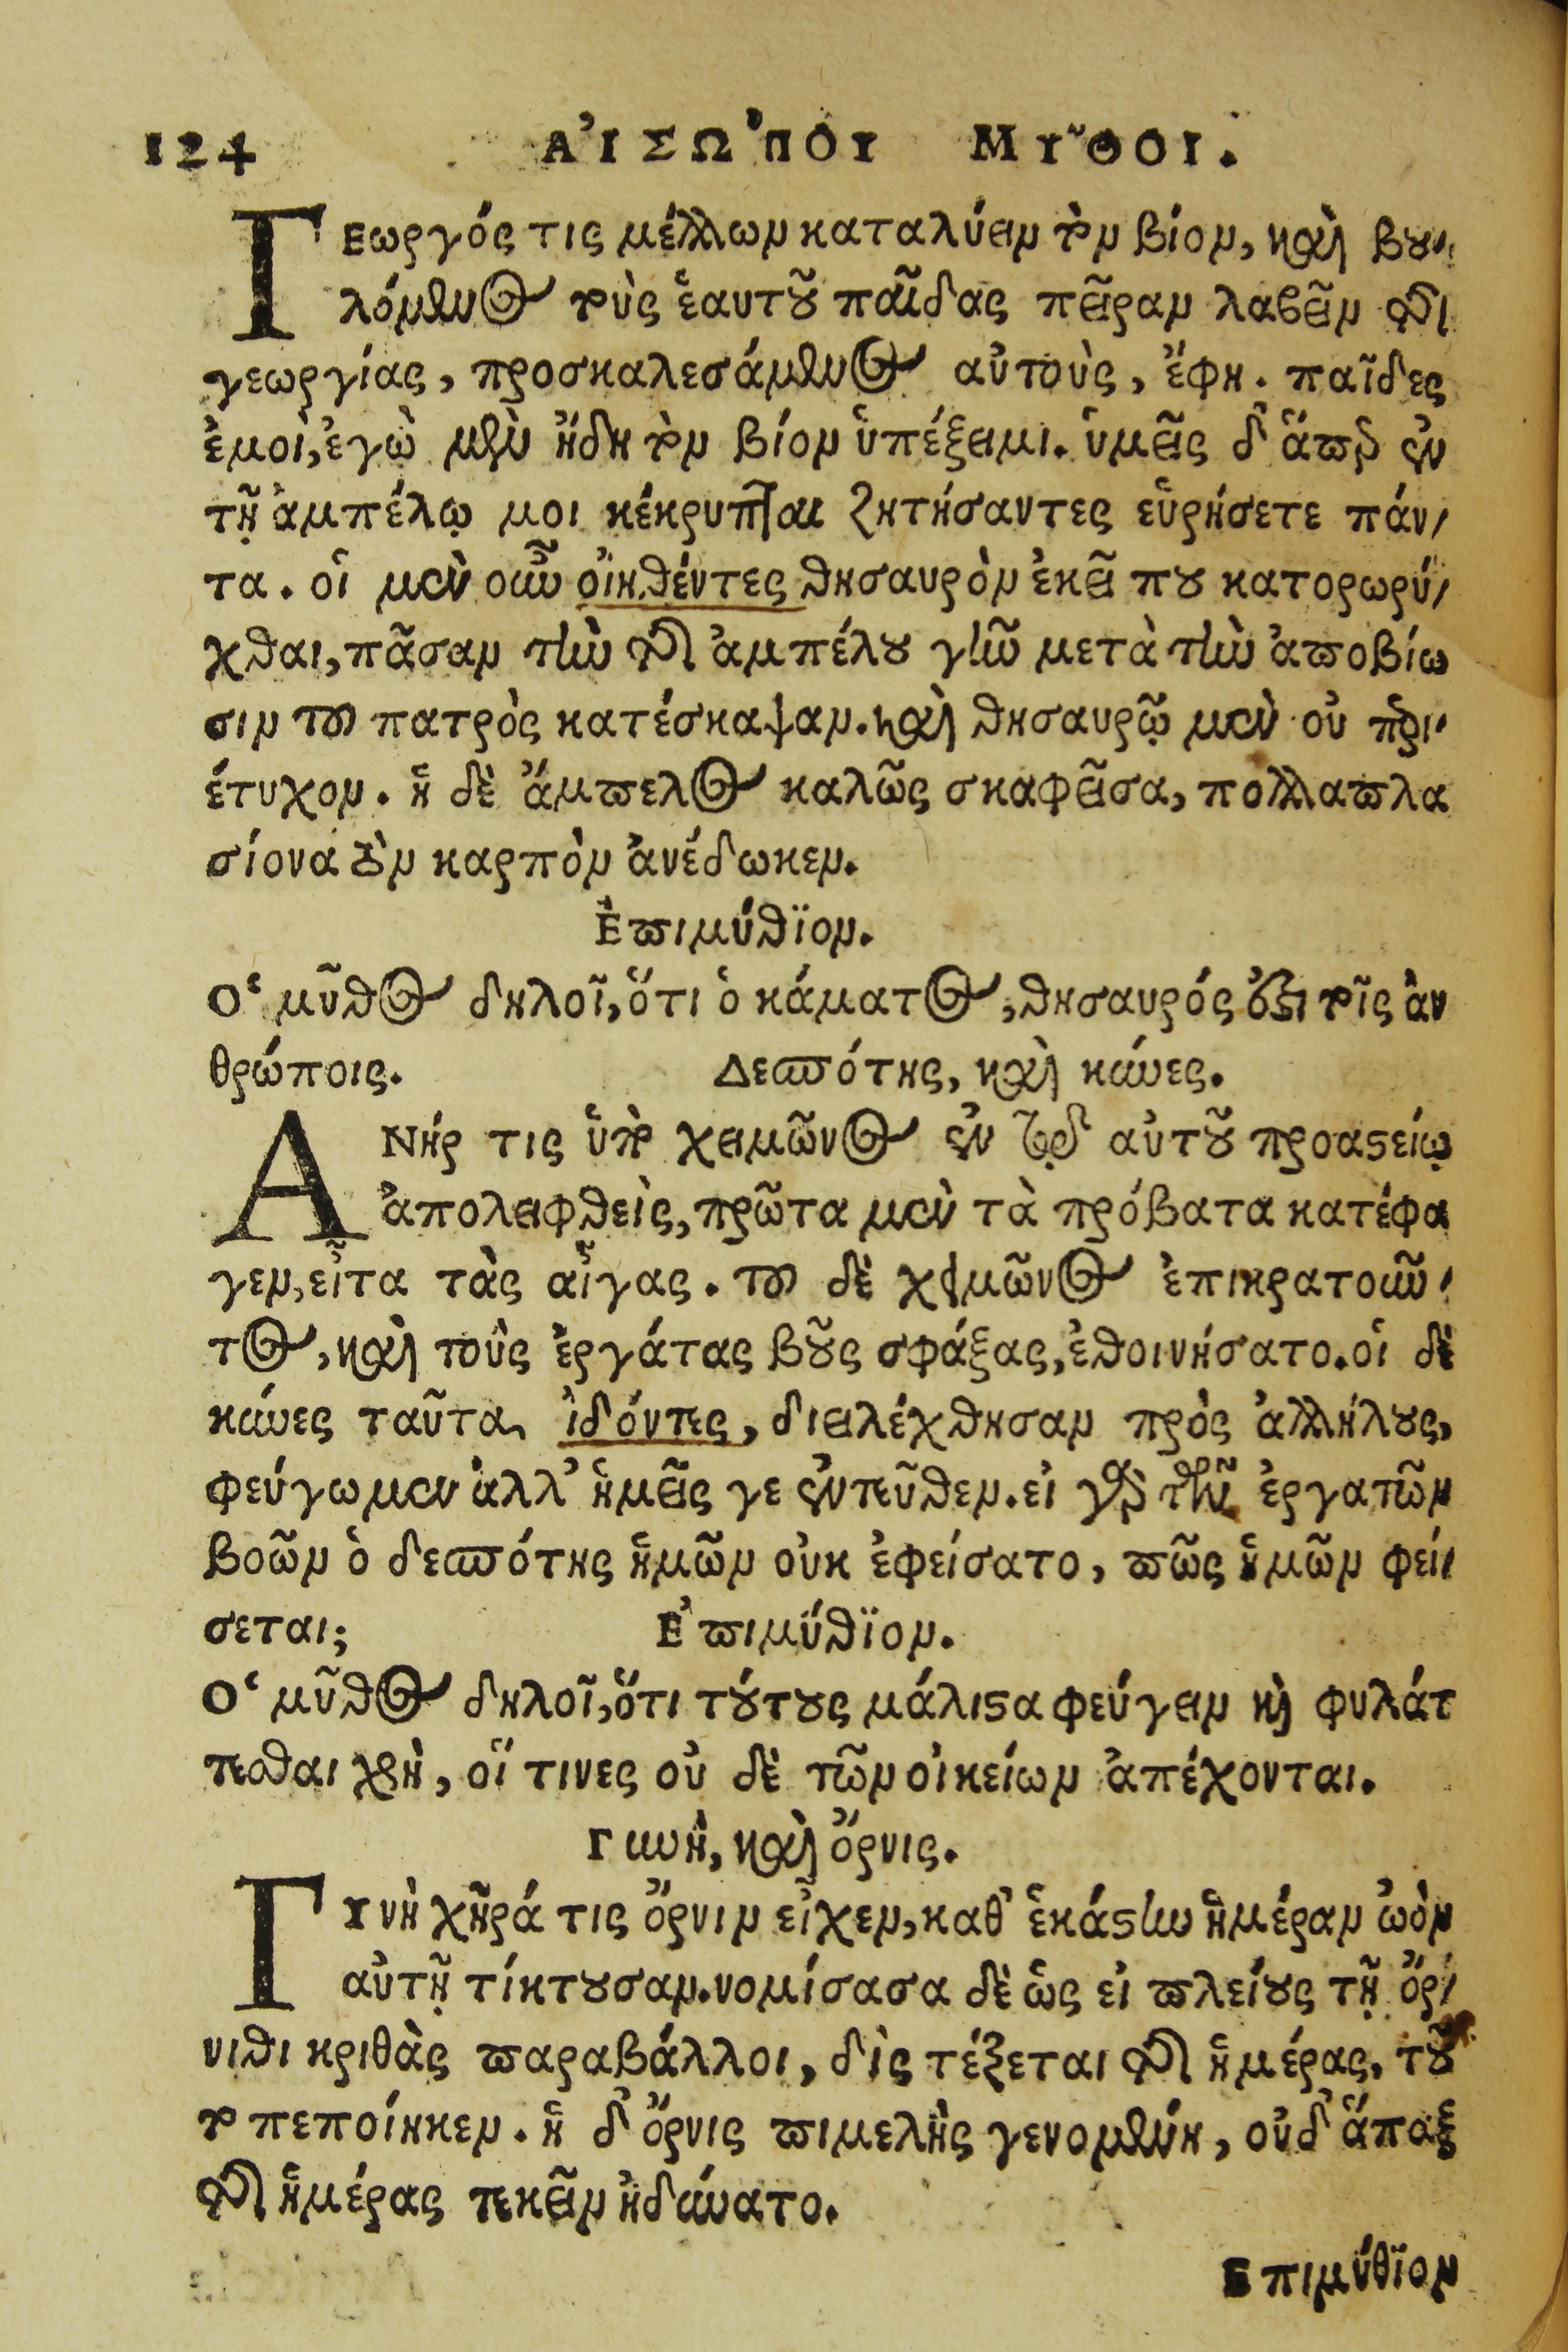 124 ΑἸΣΩ'ΠΟΥ ΜΥ͂ΘΟΙ.
ΓΕωργός τις μέλλων καταλύειν τὸν βίον, καὶ βου-
λόμενος τοὺς ἑαυτοῦ παῖδας πεῖραν λαβεῖν τῆς
γεωργίας, προσκαλεσάμενος αὐτοὺς, ἔφη. παῖδες
ἐμοὶ, ἐγὼ μὲν ἤδη τὸν βίον ὑπέξειμι. ὑμεῖς δ' ἅπερ ἐν
τῇ ἀμπέλῳ μοι κέκρυπται ζητήσαντες εὑρήσετε πάν-
τα. οἱ μὲν οὖν οἰηθέντες θησαυρὸν ἐκεῖ που κατορωρύ-
χθαι, πᾶσαν τὴν τῆς ἀμπέλου γῆν μετὰ τὴν ἀποβίω
σιν τοῦ πατρὸς κατέσκαψαν. καὶ θησαυρῷ μὲν οὐ περι-
έτυχον. ἡ δὲ ἄμπελος καλῶς σκαφεῖσα, πολλαπλα
σίονα τὸν καρπὸν ἀνέδωκεν.
Ἐπιμύθϊον.
Ὁ μῦθος δηλοῖ, ὅτι ὁ κάματος, θησαυρός ἐστι τοῖς ἀν
θρώποις. Δεσπότης, καὶ κύνες.
ΑΝήρ τις ὑπὸ χειμῶνος ἐν τῷδε αὐτοῦ προαστείῳ
ἀπολειφθεὶς, πρῶτα μὲν τὰ πρόβατα κατέφα
γεν, εἶτα τὰς αἶγας. τοῦ δὲ χειμῶνος ἐπικρατοῦν-
τος, καὶ τοὺς ἐργάτας βοῦς σφάξας, ἐθοινήσατο. οἱ δὲ
κύνες ταῦτα ἰδόντες, διειλέχθησαν πρὸς ἀλλήλους,
φεύγωμεν ἀλλ' ἡμεῖς γε ἐντεῦθεν. εἰ γὰρ τῶν ἐργατῶν
βοῶν ὁ δεσπότης ἡμῶν οὐκ ἐφείσατο, πῶς ἡμῶν φεί-
σεται; Ἐπιμύθϊον.
Ὁ μῦθος δηλοῖ, ὅτι τούτους μάλιστα φεύγειν καὶ φυλάτ
τεσθαι χρὴ, οἵ τινες οὐ δὲ τῶν οἰκείων ἀπέχονται.
Γυνὴ, καὶ ὄρνις.
ΓΥνὴ χήρά τις ὄρνιν εἶχεν, καθ' ἑκάστην ἡμέραν ὠὸν
αὐτῇ τίκτουσαν. νομίσασα δὲ ὡς εἰ πλείους τῇ ὄρ-
νιθι κριθὰς παραβάλλοι, δὶς τέξεται τῆς ἡμέρας, τοῦ
το πεποίηκεν. ἡ δ' ὄρνις πιμελὴς γενομένη, οὐδ' ἅπαξ
τῆς ἡμέρας τεκεῖν ἠδύνατο.
Ἐπιμύθϊον